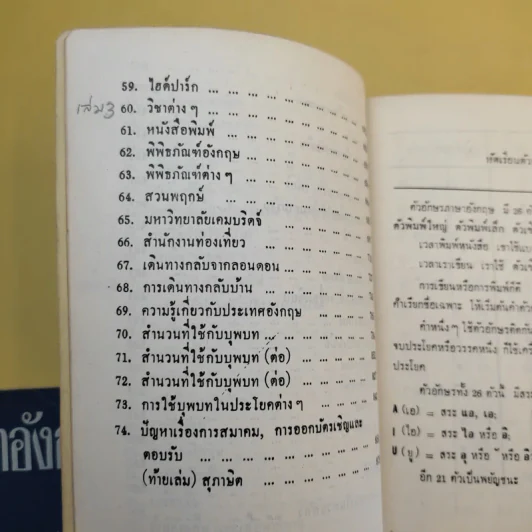 59. ไฮด์ปาร์ก ... ... ... ... ... ... ... ...
เล่ม 3
60. วิชาต่าง ๆ ... ... ... ... ... ... ... ...
61. หนังสือพิมพ์ ... ... ... ... ... ... ...
62. พิพิธภัณฑ์อังกฤษ ... ... ... ... ... ...
63. พิพิธภัณฑ์ต่าง ๆ ... ... ... ... ... ...
64. สวนพฤกษ์ ... ... ... ... ... ... ...
65. มหาวิทยาลัยเคมบริดจ์ ... ... ... ... ...
66. สำนักงานท่องเที่ยว ... ... ... ... ...
67. เดินทางกลับจากลอนดอน ... ... ... ... ...
68. การเดินทางกลับบ้าน ... ... ... ... ...
69. ความรู้เกี่ยวกับประเทศอังกฤษ ... ... ... ...
70. สำนวนที่ใช้กับบุพบท ... ... ... ... ...
71. สำนวนที่ใช้กับบุพบท (ต่อ) ... ... ... ...
72. สำนวนที่ใช้กับบุพบท (ต่อ) ... ... ... ...
73. การใช้บุพบทในประโยคต่าง ๆ ... ... ... ...
74. ปัญหาเรื่องการสมาคม, การออกบัตรเชิญและ
ตอบรับ ... ... ... ... ... ... ...
(ท้ายเล่ม) สุภาษิต ... ... ... ... ...
หัดเรียนตัว
ตัวอักษรภาษาอังกฤษ มี 26
ตัวพิมพ์ใหญ่ ตัวพิมพ์เล็ก
เวลาพิมพ์หนังสือ เราใช้
เวลาเราเขียน เราใช้
การเขียนหรือการพิมพ์ก็ดี
คำเรียกชื่อเฉพาะ ให้เริ่มต้น
คำหนึ่งๆ ใช้ตัวอักษร
จบประโยคหรือวรรคหนึ่ง ก็ใช้
ประโยค
ตัวอักษรทั้ง 26 ตัวนี้ มีสระ
A (เอ) = สระ แอ, เอ;
I (ไอ) = สระ ไอ หรือ อิ;
U (ยู) = สระ อุ หรือ
อีก 21 ตัวเป็นพยัญชนะ